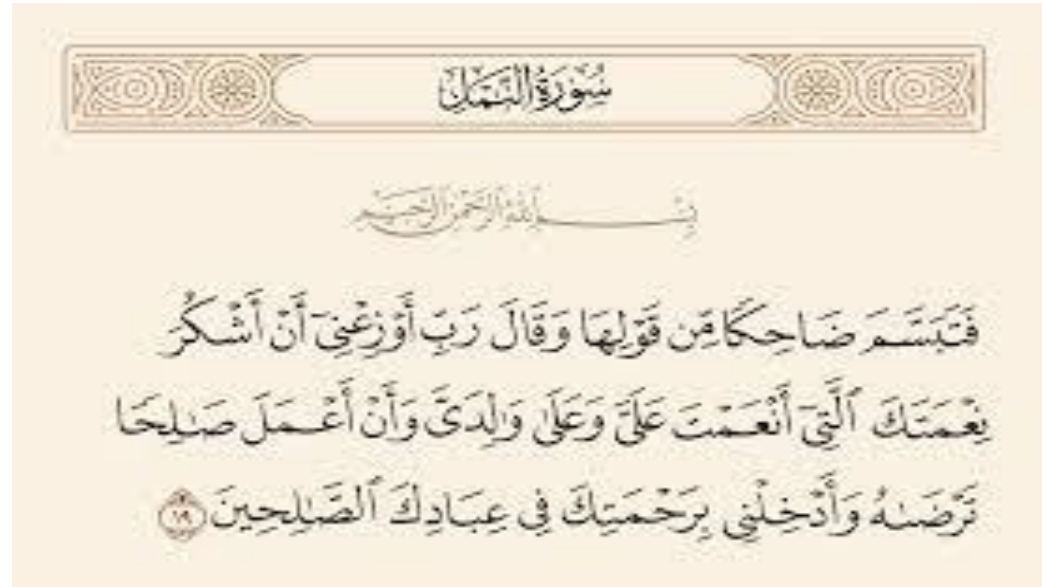 سُورَةُ النَّمْلِ
بِسْمِ اللَّهِ الرَّحْمَٰنِ الرَّحِيمِ
فَتَبَسَّمَ ضَاحِكًا مِّن قَوْلِهَا وَقَالَ رَبِّ أَوْزِعْنِىٓ أَنْ أَشْكُرَ
نِعْمَتَكَ ٱلَّتِىٓ أَنْعَمْتَ عَلَىَّ وَعَلَىٰ وَٰلِدَىَّ وَأَنْ أَعْمَلَ صَٰلِحًا
تَرْضَىٰهُ وَأَدْخِلْنِى بِرَحْمَتِكَ فِى عِبَادِكَ ٱلصَّٰلِحِينَ ١٩